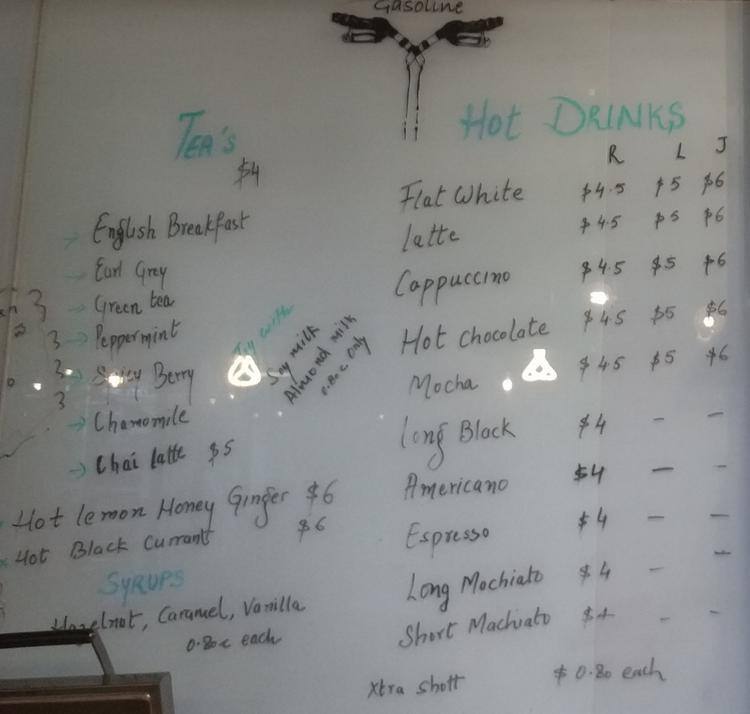 Gasoline
TEA'S
$4
English Breakfast
Earl Grey
Green tea
Peppermint
Spicy Berry
Chamomile
Chai latte $5
Try with
Soy milk
Almond milk
0.80c only
Hot lemon Honey Ginger $6
Hot Black Currant $6
SYRUPS
Hazelnut, Caramel, Vanilla
0.80c each
Hot DRINKS
R L J
Flat White $4.5 $5 $6
latte $4.5 $5 $6
Cappuccino $4.5 $5 $6
Hot chocolate $4.5 $5 $6
Mocha $4.5 $5 $6
Long Black $4 - -
Americano $4 - -
Espresso $4 - -
Long Mochiato $4 - -
Short Machiato $4 - -
Xtra shott $0.80 each